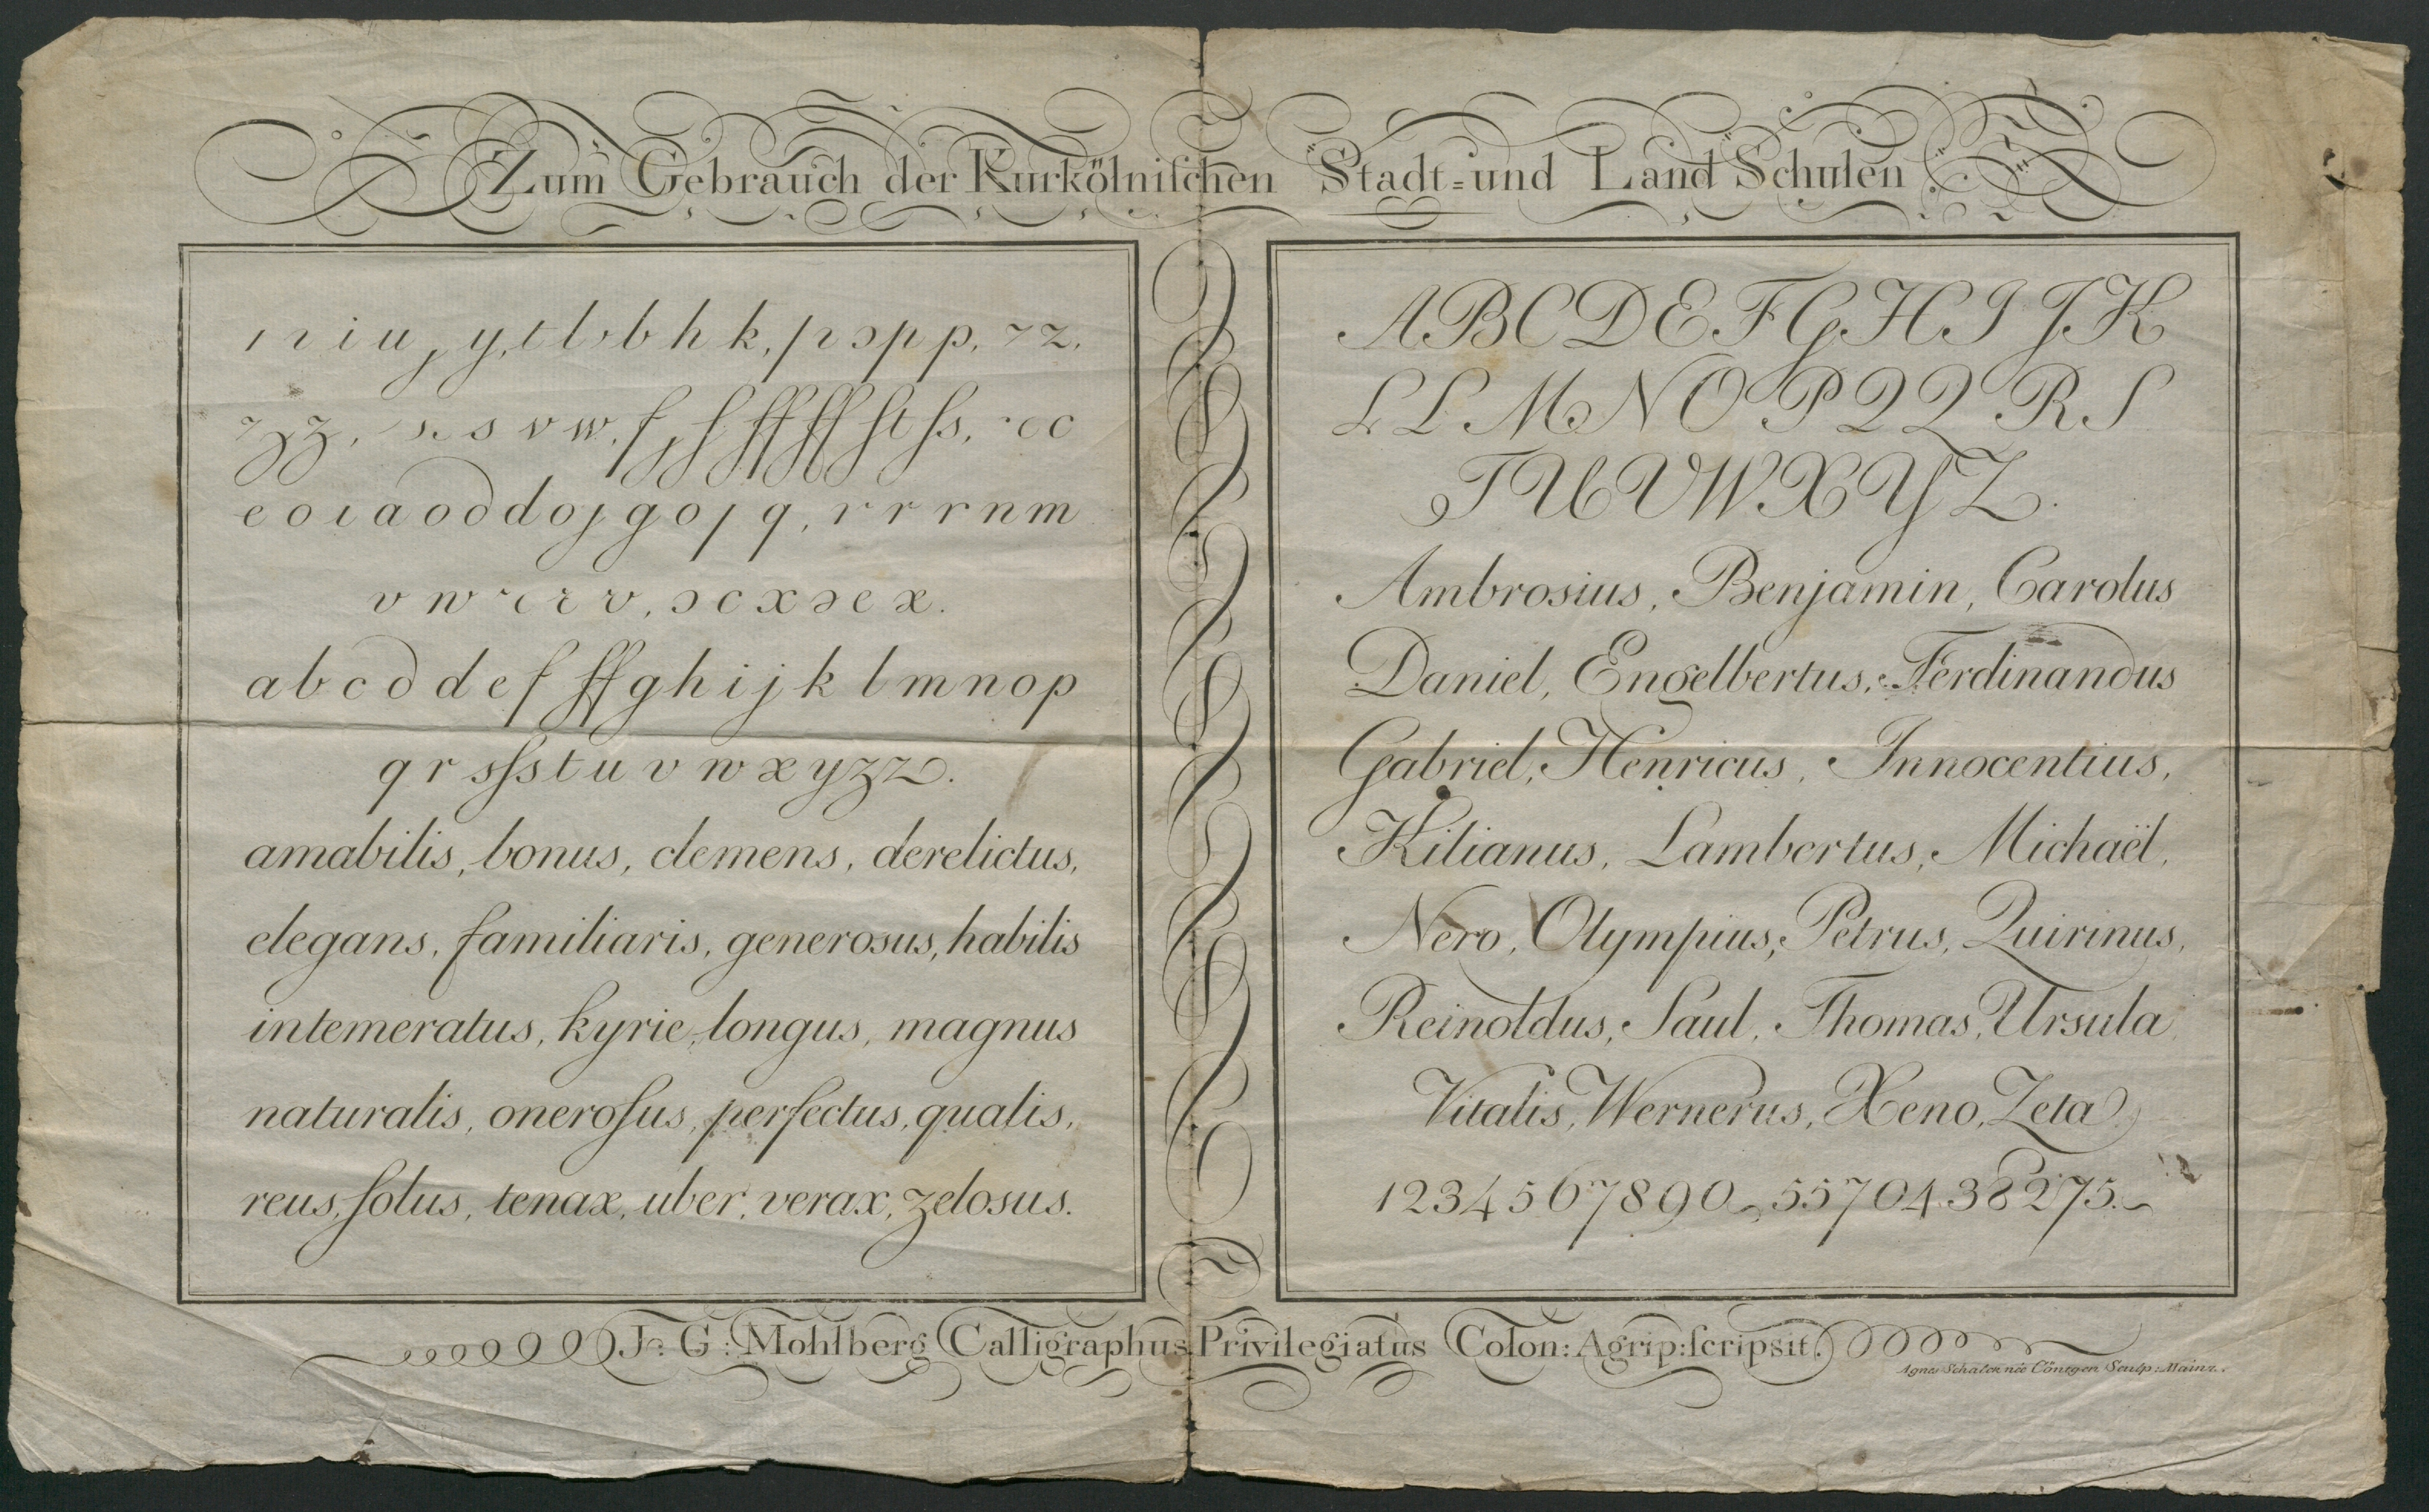 Zum Gebrauch der Kurkölniſchen Stadt=und Land Schulen
ı r i u , y, t l b b h k, p p p, z z,
z z, s s v w, ſ ſ ſſ ſſ ſt ſs, c c
e o ı a o d d o j g o j q, r r r n m
v w r r v, ɔ c x ɔ e x.
a b c d d e f ff g h i j k l m n o p
q r s ſs t u v w x y z z.
amabilis, bonus, clemens, derelictus,
elegans, familiaris, generosus, habilis
intemeratus, kyrie, longus, magnus
naturalis, oneroſus, perfectus, qualis,
reus, ſolus, tenax, uber, verax, zelosus.
A B C D E F G H I J K
L L M N O P Q Q R S
T U V W X Y Z.
Ambrosius, Benjamin, Carolus
Daniel, Engelbertus, Ferdinandus
Gabriel, Henricus, Innocentius,
Kilianus, Lambertus, Michaël,
Nero, Olympius, Petrus, Quirinus,
Reinoldus, Saul, Thomas, Ursula
Vitalis, Wernerus, Xeno, Zeta.
1234567890, 5570438275.
J: G: Mohlberg Calligraphus Privilegiatus Colon: Agrip: ſcripsit.
Agnes Schalck née Cöntgen Sculp: Mainz.